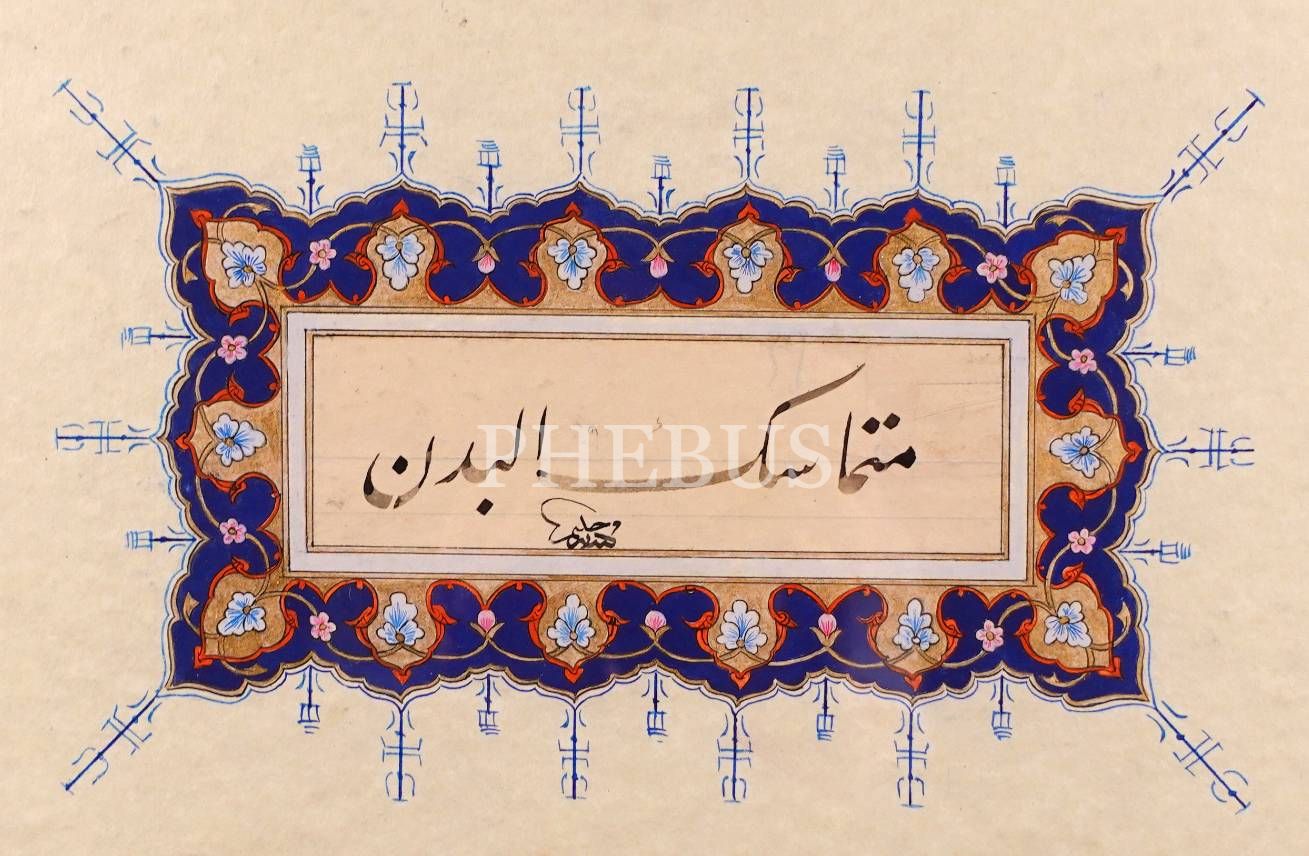 متماسك البدن
PHEBUS